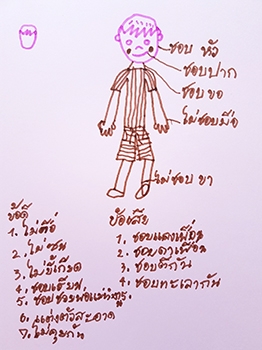 ชอบ หัว
ชอบปาก
ชอบ คอ
ไม่ชอบมือ
ไม่ชอบ ขา
ข้อดี
1. ไม่ดื้อ
2. ไม่ซน
3. ไม่ขี้เกียจ
4. ชอบเรียน
5. ชอบช่วยพ่อแม่
6. แต่งตัวสะอาด
7. ไม่คุยกัน
ข้อเสีย
1. ชอบแกล้งเพื่อน
2. ชอบด่าเพื่อน
3. ชอบตีกัน
4. ชอบทะเลากัน